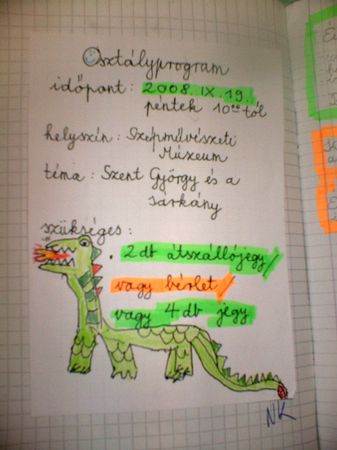 Osztályprogram
időpont : 2008. IX. 19.
péntek 10⁰⁰-tól
helyszín : Szépművészeti
Múzeum
téma : Szent György és a
sárkány
szükséges :
• 2 db átszállójegy
vagy bérlet
vagy 4 db jegy
NK